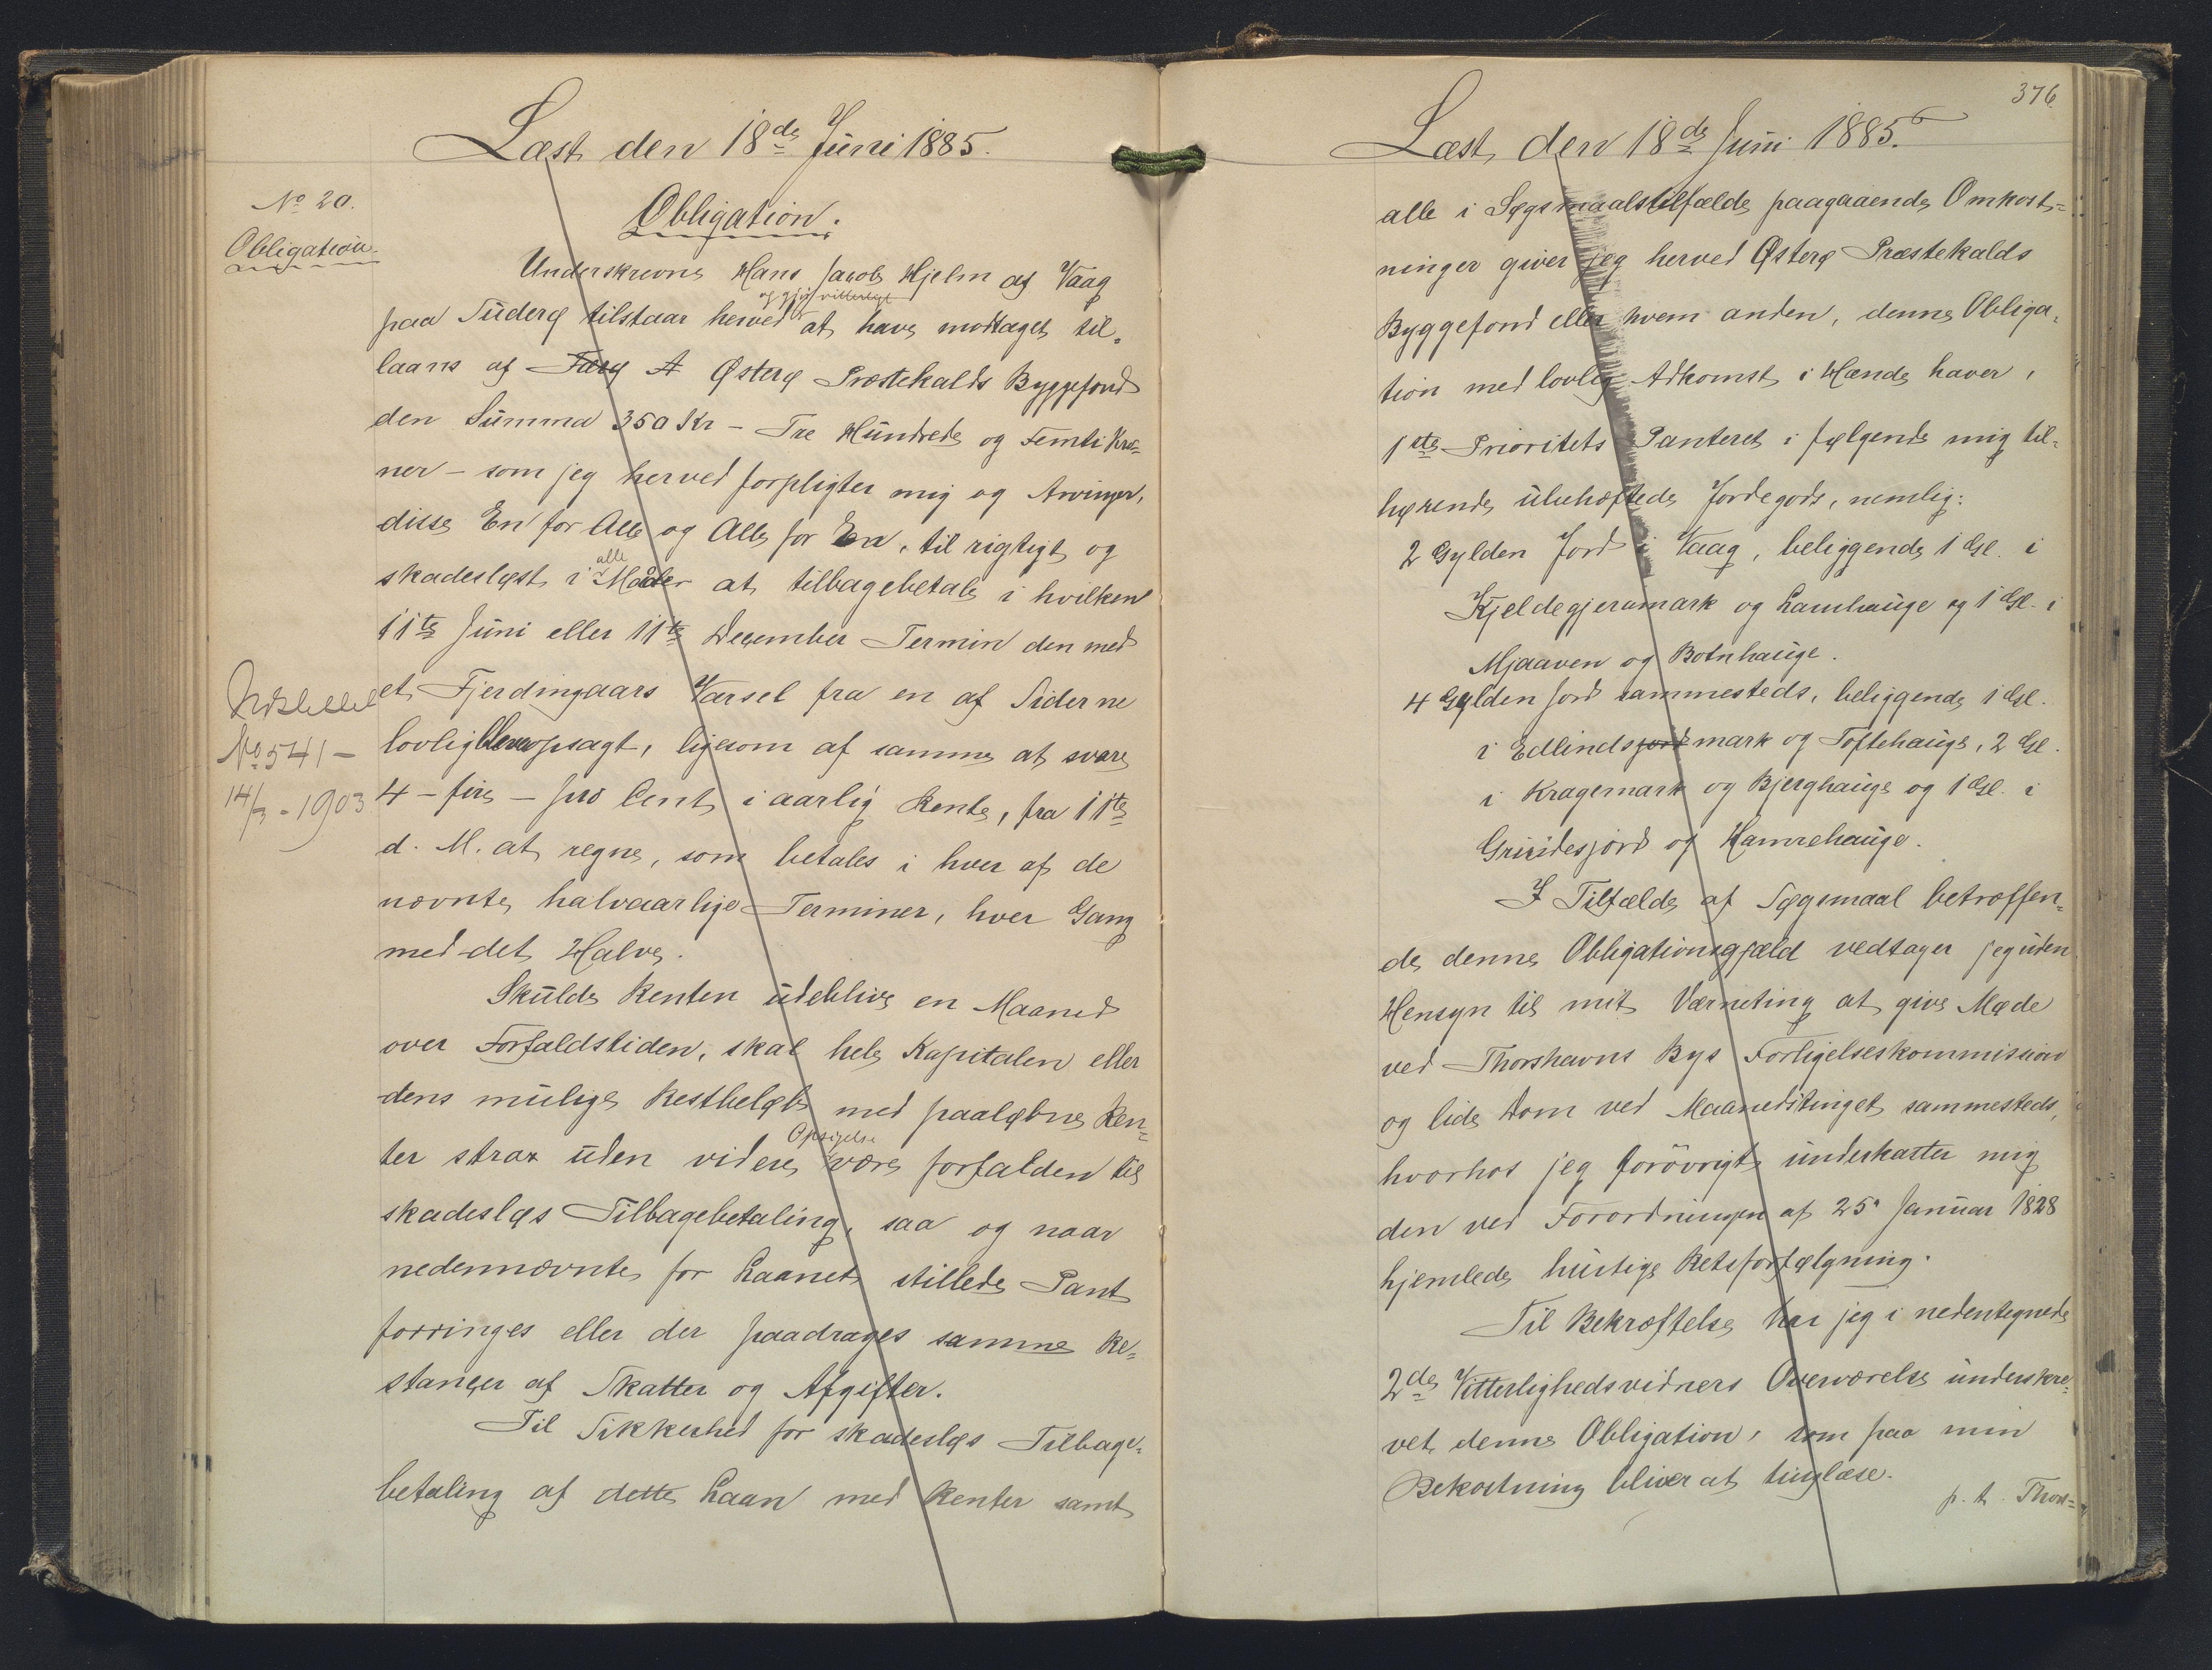 Læst den 18de Juni 1885.
No 20.
Obligation.
Obligation.
Underskrevne Hans Jacob Hjelm af Vaag
og gjør vitterligt
paa Suderø tilstaar herved at have modtaget til-
laans af Færø A Østerø Præstekalds Byggefond
den Summa 350 Kr - Tre Hundrede og Femti Kro-
ner - som jeg herved forpligter mig og Arvinger,
disse En for Alle og Alle for En, til rigtigt og
alle
skadesløst i Måder at tilbagebetale i hvilken
11te Juni eller 11te December Termin den med
et Fjerdingaars Varsel fra en af Siderne
lovlig bliver opsagt, ligesom af samme at svare
4 - fire - pro Cent i aarlig Rente, fra 11te
d. M. at regne, som betales i hver af de
nævnte halvaarlige Terminer, hver Gang
med det Halve.
Udslettet
No 541 -
14/3 - 1903
Skulde Renten udeblive en Maaned
over Forfaldstiden, skal hele Kapitalen eller
dens mulige Restbeløb med paaløbne Ren-
Opsigelse
ter strax uden videre være forfalden til
skadesløs Tilbagebetaling, saa og naar
nedennævnte for Laanet stillede Pant
forringes eller der paadrages samme Re-
stancer af Skatter og Afgifter.
Til Sikkerhed for skadesløs Tilbage-
betaling af dette Laan med Renter samt
376
Læst den 18de Juni 1885.
alle i Søgsmaalstilfælde paagaaende Omkost-
ninger giver jeg herved Østerø Præstekalds
Byggefond eller hvem anden, denne Obliga-
tion med lovlig Adkomst i Hænde haver,
1ste Prioritets Panteret i følgende mig til-
hørende ubehæftede Jordegods, nemlig:
2 Gylden Jord i Vaag, beliggende 1 Gl. i
Kjeldegjeramark og Lamhauge og 1 Gl. i
Mjaaven og Botnhauge.
4 Gylden Jord sammesteds, beliggende 1 Gl.
i Edlindsjord mark og Toftehauge, 2 Gl.
i Kragemark og Bjerghauge og 1 Gl. i
og Hamrehauge.
I Tilfælde af Søgsmaal betræffen-
de denne Obligationsgjæld vedtager jeg uden
Hensyn til mit Værneting at give Møde
ved Thorshavns Bys Forligelseskommission
og lide Dom ved Maanedstinget sammesteds,
hvorhos jeg forövrigt underkaster mig
den ved Forordningen af 25. Januar 1828
hjemlede hurtige Retsforfølgning.
Til Bekræftelse har jeg i nedentegnede
2de Vitterlighedsvidners Overværelse underskre-
vet denne Obligation, som paa min
Bekostning bliver at tinglæse.
p. t. Thors-